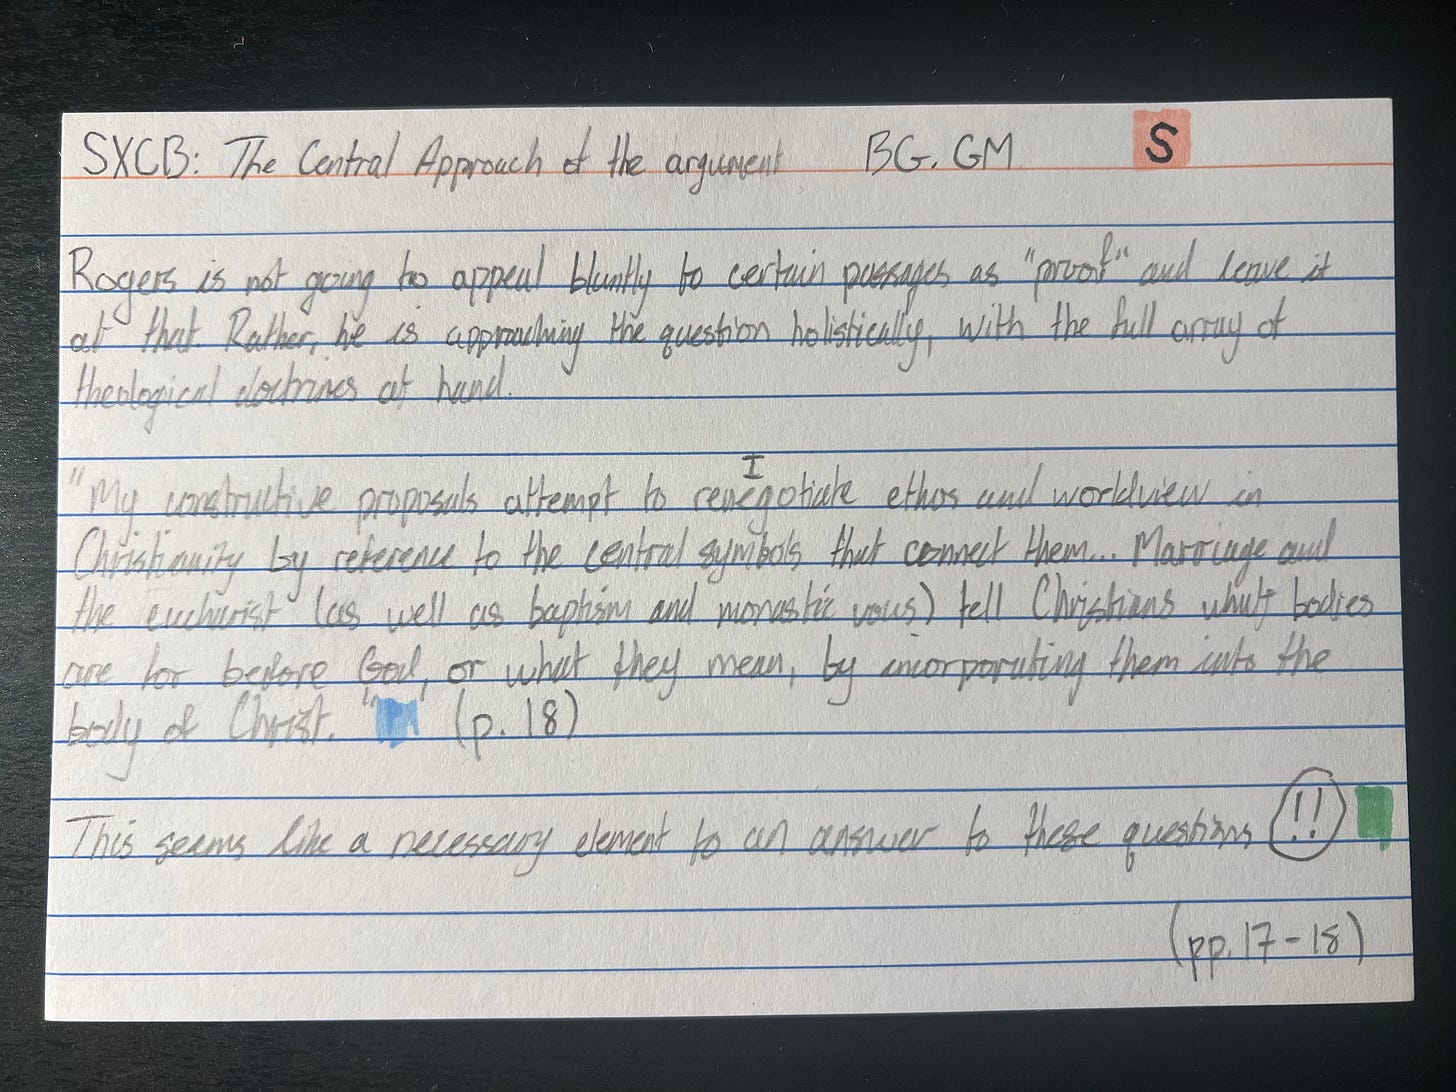 SXCB: The Central Approach of the argument BG. GM S
Rogers is not going to appeal bluntly to certain passages as "proof" and leave it
at that. Rather, he is approaching the question holistically, with the full array of
theological doctrines at hand.
I
"My constructive proposals attempt to renegotiate ethos and worldview in
Christianity by reference to the central symbols that connect them... Marriage and
the eucharist (as well as baptism and monastic vows) tell Christians what bodies
are for before God, or what they mean, by incorporating them into the
body of Christ." (p. 18)
This seems like a necessary element to an answer to these questions !!
(pp. 17-18)